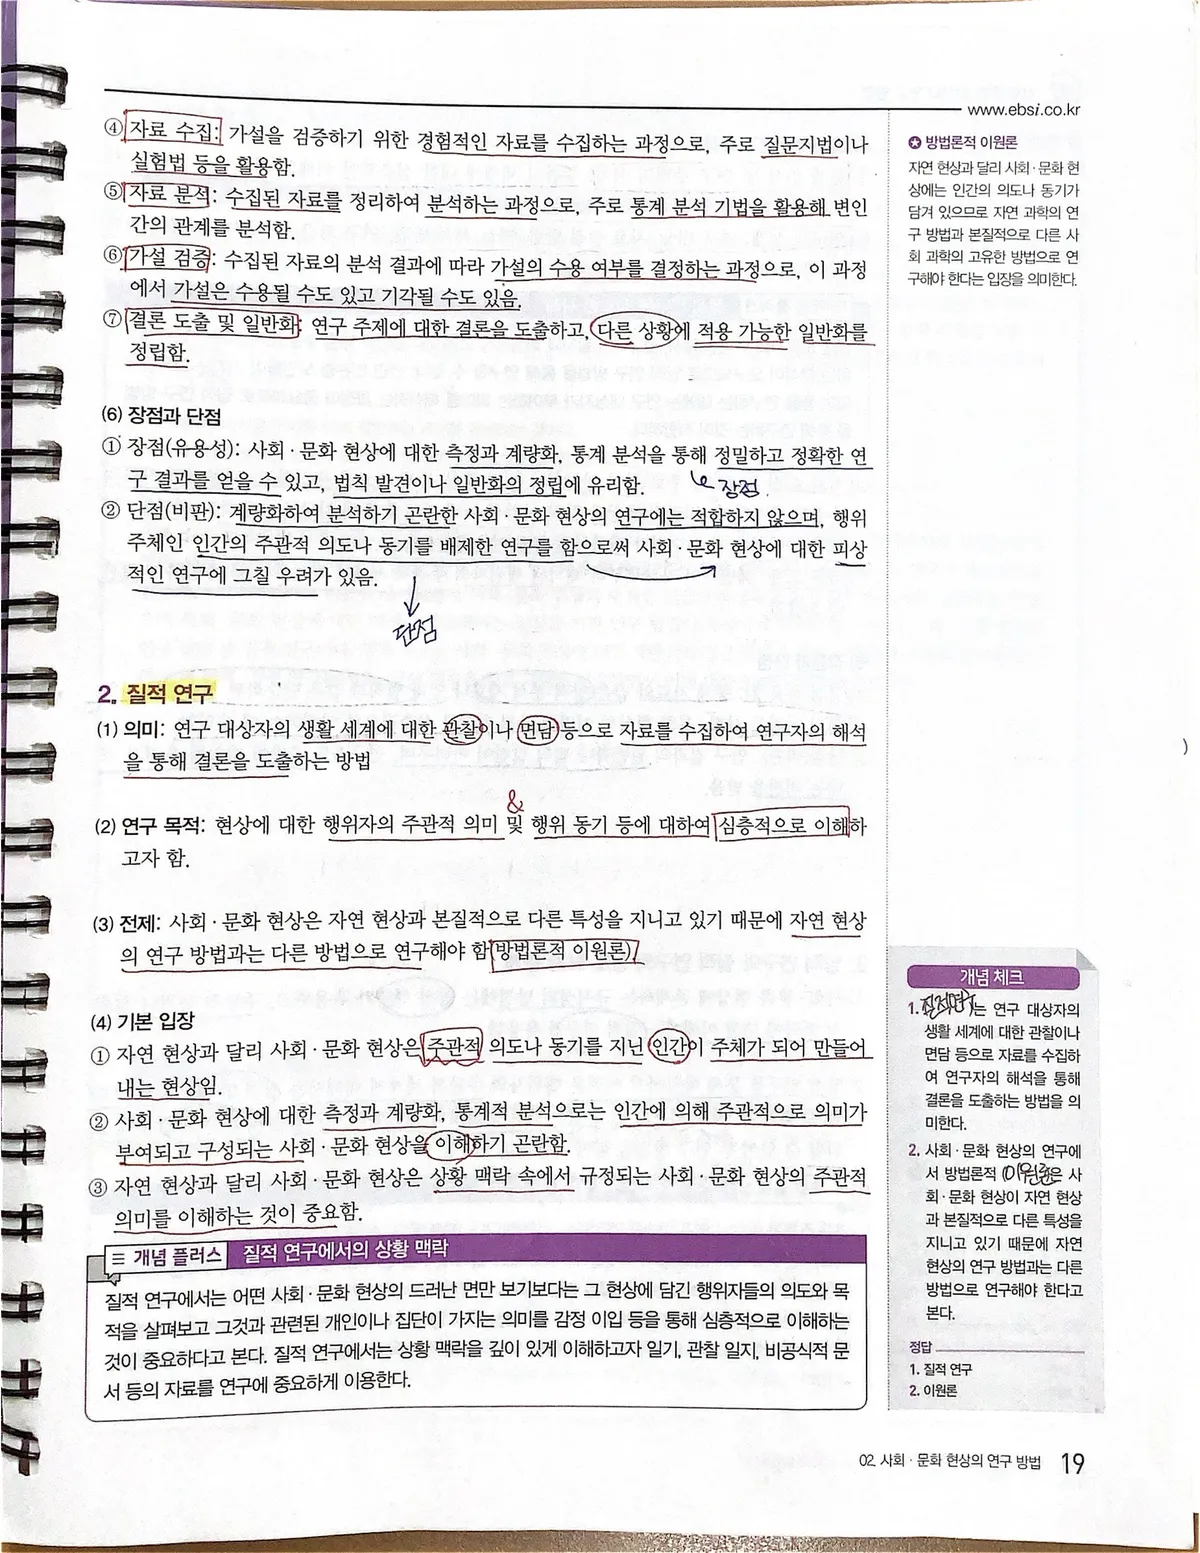 www.ebsi.co.kr
④ 자료 수집: 가설을 검증하기 위한 경험적인 자료를 수집하는 과정으로, 주로 질문지법이나
실험법 등을 활용함.
⑤ 자료 분석: 수집된 자료를 정리하여 분석하는 과정으로, 주로 통계 분석 기법을 활용해 변인
간의 관계를 분석함.
⑥ 가설 검증: 수집된 자료의 분석 결과에 따라 가설의 수용 여부를 결정하는 과정으로, 이 과정
에서 가설은 수용될 수도 있고 기각될 수도 있음.
⑦ 결론 도출 및 일반화: 연구 주제에 대한 결론을 도출하고, 다른 상황에 적용 가능한 일반화를
정립함.
(6) 장점과 단점
① 장점(유용성): 사회·문화 현상에 대한 측정과 계량화, 통계 분석을 통해 정밀하고 정확한 연
구 결과를 얻을 수 있고, 법칙 발견이나 일반화의 정립에 유리함.
장점.
② 단점(비판): 계량화하여 분석하기 곤란한 사회·문화 현상의 연구에는 적합하지 않으며, 행위
주체인 인간의 주관적 의도나 동기를 배제한 연구를 함으로써 사회·문화 현상에 대한 피상
적인 연구에 그칠 우려가 있음.
단점
2. 질적 연구
(1) 의미: 연구 대상자의 생활 세계에 대한 관찰이나 면담 등으로 자료를 수집하여 연구자의 해석
을 통해 결론을 도출하는 방법
&
(2) 연구 목적: 현상에 대한 행위자의 주관적 의미 및 행위 동기 등에 대하여 심층적으로 이해하
고자 함.
(3) 전제: 사회·문화 현상은 자연 현상과 본질적으로 다른 특성을 지니고 있기 때문에 자연 현상
의 연구 방법과는 다른 방법으로 연구해야 함(방법론적 이원론)
(4) 기본 입장
① 자연 현상과 달리 사회·문화 현상은 주관적 의도나 동기를 지닌 인간이 주체가 되어 만들어
내는 현상임.
② 사회·문화 현상에 대한 측정과 계량화, 통계적 분석으로는 인간에 의해 주관적으로 의미가
부여되고 구성되는 사회·문화 현상을 이해하기 곤란함.
③ 자연 현상과 달리 사회·문화 현상은 상황 맥락 속에서 규정되는 사회·문화 현상의 주관적
의미를 이해하는 것이 중요함.
개념 플러스 질적 연구에서의 상황 맥락
질적 연구에서는 어떤 사회·문화 현상의 드러난 면만 보기보다는 그 현상에 담긴 행위자들의 의도와 목
적을 살펴보고 그것과 관련된 개인이나 집단이 가지는 의미를 감정 이입 등을 통해 심층적으로 이해하는
것이 중요하다고 본다. 질적 연구에서는 상황 맥락을 깊이 있게 이해하고자 일기, 관찰 일지, 비공식적 문
서 등의 자료를 연구에 중요하게 이용한다.
✪ 방법론적 이원론
자연 현상과 달리 사회·문화 현
상에는 인간의 의도나 동기가
담겨 있으므로 자연 과학의 연
구 방법과 본질적으로 다른 사
회 과학의 고유한 방법으로 연
구해야 한다는 입장을 의미한다.
개념 체크
1. 질적연구는 연구 대상자의
생활 세계에 대한 관찰이나
면담 등으로 자료를 수집하
여 연구자의 해석을 통해
결론을 도출하는 방법을 의
미한다.
2. 사회·문화 현상의 연구에
서 방법론적 이원론은 사
회·문화 현상이 자연 현상
과 본질적으로 다른 특성을
지니고 있기 때문에 자연
현상의 연구 방법과는 다른
방법으로 연구해야 한다고
본다.
정답
1. 질적 연구
2. 이원론
02. 사회·문화 현상의 연구 방법 19